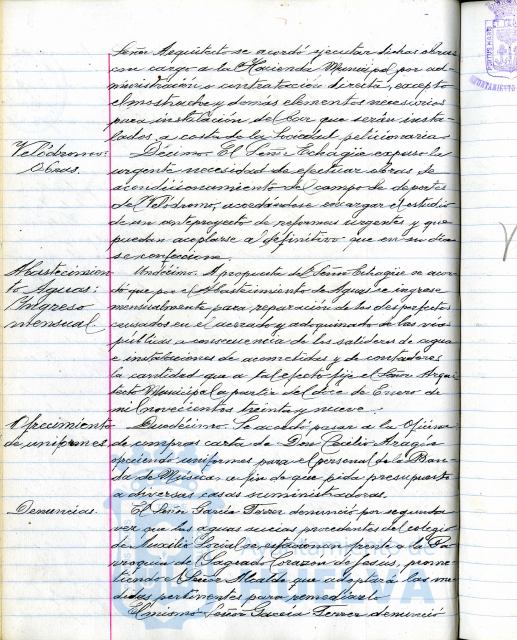 Señor Arquitecto se acordó ejecutar dichas obras
con cargo a la Hacienda Municipal por ad-
ministración o contratación directa, excepto
el mostrador y demás elementos necesarios
para instalación del bar que serán insta-
lados a costa de la Sociedad peticionaria.
Velódromo:
Obras.
Décimo. El Señor Echagüe expuso la
urgente necesidad de efectuar obras de
acondicionamiento del campo de deportes
del Velódromo, acordándose encargar el estudio
de un anteproyecto de reformas urgentes y que
puedan acoplarse al definitivo que en su día
se confeccione.
Abastecimien
to Aguas:
Ingreso
mensual.
Undécimo. A propuesta del Señor Echagüe se acor
dó que por el Abastecimiento de Aguas se ingrese
mensualmente para reparación de los desperfectos
causados en el acerado y adoquinado de las vías
públicas a consecuencia de las salideras de agua
e instalaciones de acometidas y de contadores
la cantidad que a tal efecto fije el Señor Arqui
tecto Municipal a partir del doce de Enero de
mil novecientos treinta y nueve.
Ofrecimiento
de uniformes
Duodécimo. Se acordó pasar a la Oficina
de compras carta de Don Cecilio Aragón
ofreciendo uniformes para el personal de la Ban-
da de Música a fin de que pida presupuesto
a diversas casas suministradoras.
Denuncias.
El Señor García Ferrer denunció por segunda
vez que las aguas sucias procedentes del colegio
de Auxilio Social se estacionan frente a la Pa-
rroquia del Sagrado Corazón de Jesús, prome-
tiendo el Señor Alcalde que adoptará las me-
didas pertinentes para remediarlo.
El mismo Señor García Ferrer denunció